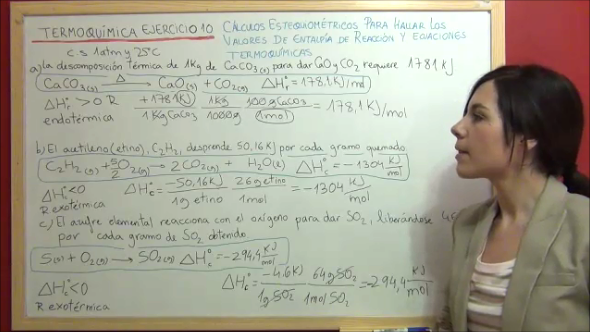 TERMOQUÍMICA EJERCICIO 10 CÁLCULOS ESTEQUIOMÉTRICOS PARA HALLAR LOS
VALORES DE ENTALPÍA DE REACCIÓN Y ECUACIONES
TERMOQUÍMICAS.
C.S. 1 atm y 25ºC
a) la descomposición térmica de 1Kg de CaCO3(s) para dar CaO y CO2 requiere 1781 KJ
CaCO3(s) —Δ→ CaO(s) + CO2(g) ΔHr° = 178,1 KJ/mol
ΔHr° > 0 R endotérmica
+1781 KJ / 1 Kg CaCO3 · 1Kg / 1000g · 100g CaCO3 / 1mol = 178,1 KJ/mol
b) El acetileno (etino), C2H2, desprende 50,16 KJ por cada gramo quemado.
C2H2(g) + 5/2 O2(g) → 2CO2(g) + H2O(l) ΔHc° = -1304 KJ/mol
ΔHc° < 0
R exotérmica
ΔHc° = -50,16 KJ / 1g etino · 26g etino / mol = -1304 KJ/mol
c) El azufre elemental reacciona con el oxígeno para dar SO2, liberándose
por cada gramo de SO2 obtenido
S(s) + O2(g) → SO2(g) ΔHc° = -294,4 KJ/mol
ΔHc° < 0
R exotérmica
ΔHc° = -4.6 KJ / 1g SO2 · 64g SO2 / 1mol SO2 = -294,4 KJ/mol